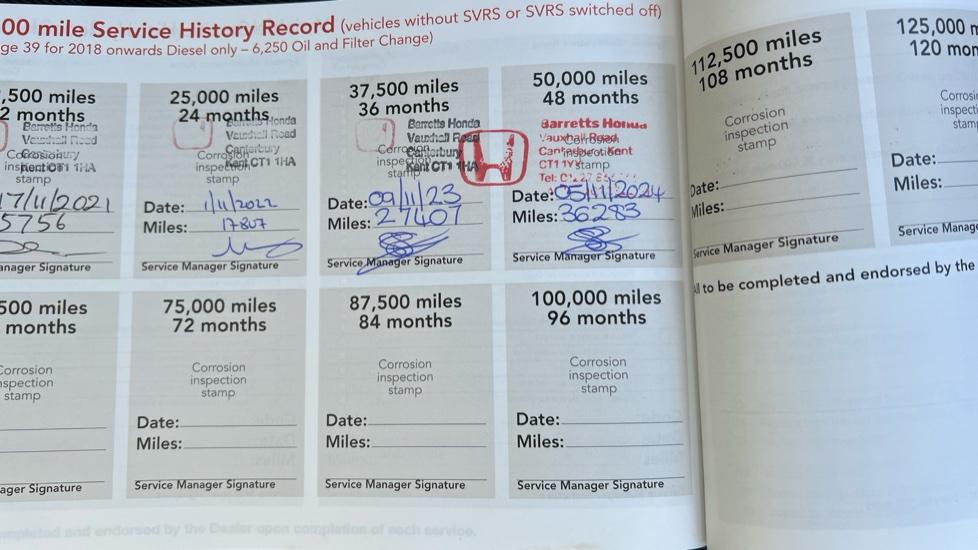 00 mile Service History Record (vehicles without SVRS or SVRS switched off)
ge 39 for 2018 onwards Diesel only – 6,250 Oil and Filter Change)
,500 miles
2 months
Barretts Honda
Vauxhall Road
Canterbury
Kent CT1 1HA
Corrosion
inspection
stamp
17/11/2021
5756
anager Signature
25,000 miles
24 months
Barretts Honda
Vauxhall Road
Canterbury
Kent CT1 1HA
Corrosion
inspection
stamp
Date: 1/11/2022
Miles: 17807
Service Manager Signature
37,500 miles
36 months
Barretts Honda
Vauxhall Road
Canterbury
Kent CT1 1HA
Corrosion
inspection
stamp
Date: 09/11/23
Miles: 27407
Service Manager Signature
50,000 miles
48 months
Barretts Honda
Vauxhall Road
Canterbury Kent
CT1 1
Tel:
Corrosion
inspection
stamp
Date: 05/11/2024
Miles: 36283
Service Manager Signature
112,500 miles
108 months
Corrosion
inspection
stamp
Date:
Miles:
Service Manager Signature
125,000 m
120 mon
Corrosi
inspecti
stamp
Date:
Miles:
Service Manag
500 miles
months
Corrosion
nspection
stamp
ager Signature
75,000 miles
72 months
Corrosion
inspection
stamp
Date:
Miles:
Service Manager Signature
87,500 miles
84 months
Corrosion
inspection
stamp
Date:
Miles:
Service Manager Signature
100,000 miles
96 months
Corrosion
inspection
stamp
Date:
Miles:
Service Manager Signature
ll to be completed and endorsed by the
ompleted and endorsed by the Dealer upon completion of each service.